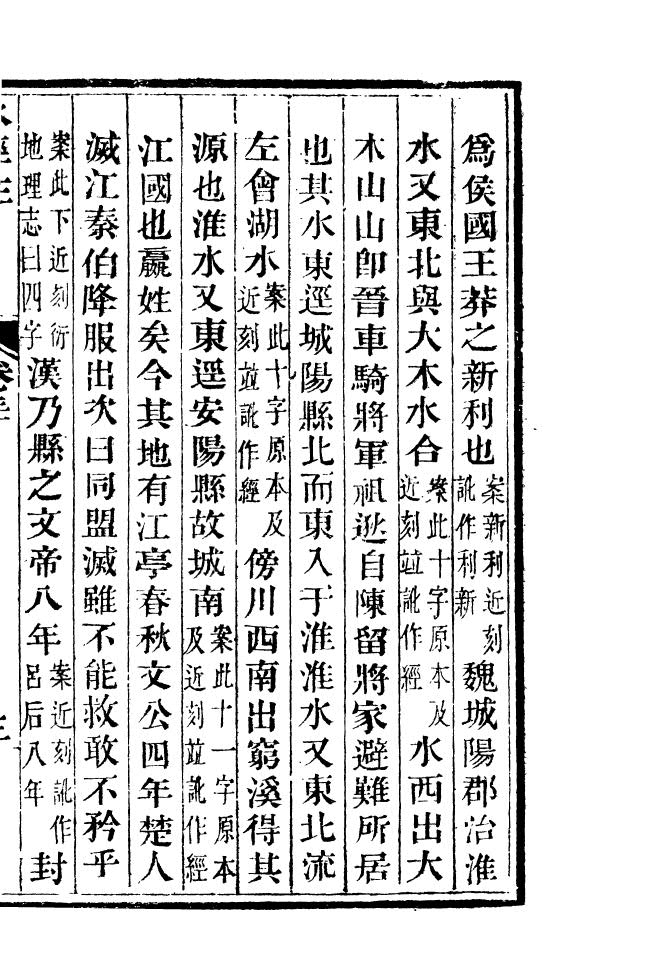 爲侯國王莽之新利也案新利近刻訛作利新魏城陽郡治淮
水又東北與大木水合案此十字原本及近刻竝訛作經水西出大
木山山卽晉車騎將軍祖逖自陳留將家避難所居
也其水東逕城陽縣北而東入于淮淮水又東北流
左會湖水案此十字原本及近刻竝訛作經傍川西南出窮溪得其
源也淮水又東逕安陽縣故城南案此十一字原本及近刻竝訛作經
江國也嬴姓矣今其地有江亭春秋文公四年楚人
滅江秦伯降服出次曰同盟滅雖不能救敢不矜乎
案此下近刻衍地理志曰四字漢乃縣之文帝八年案近刻訛作呂后八年封
水經注 卷三十 三